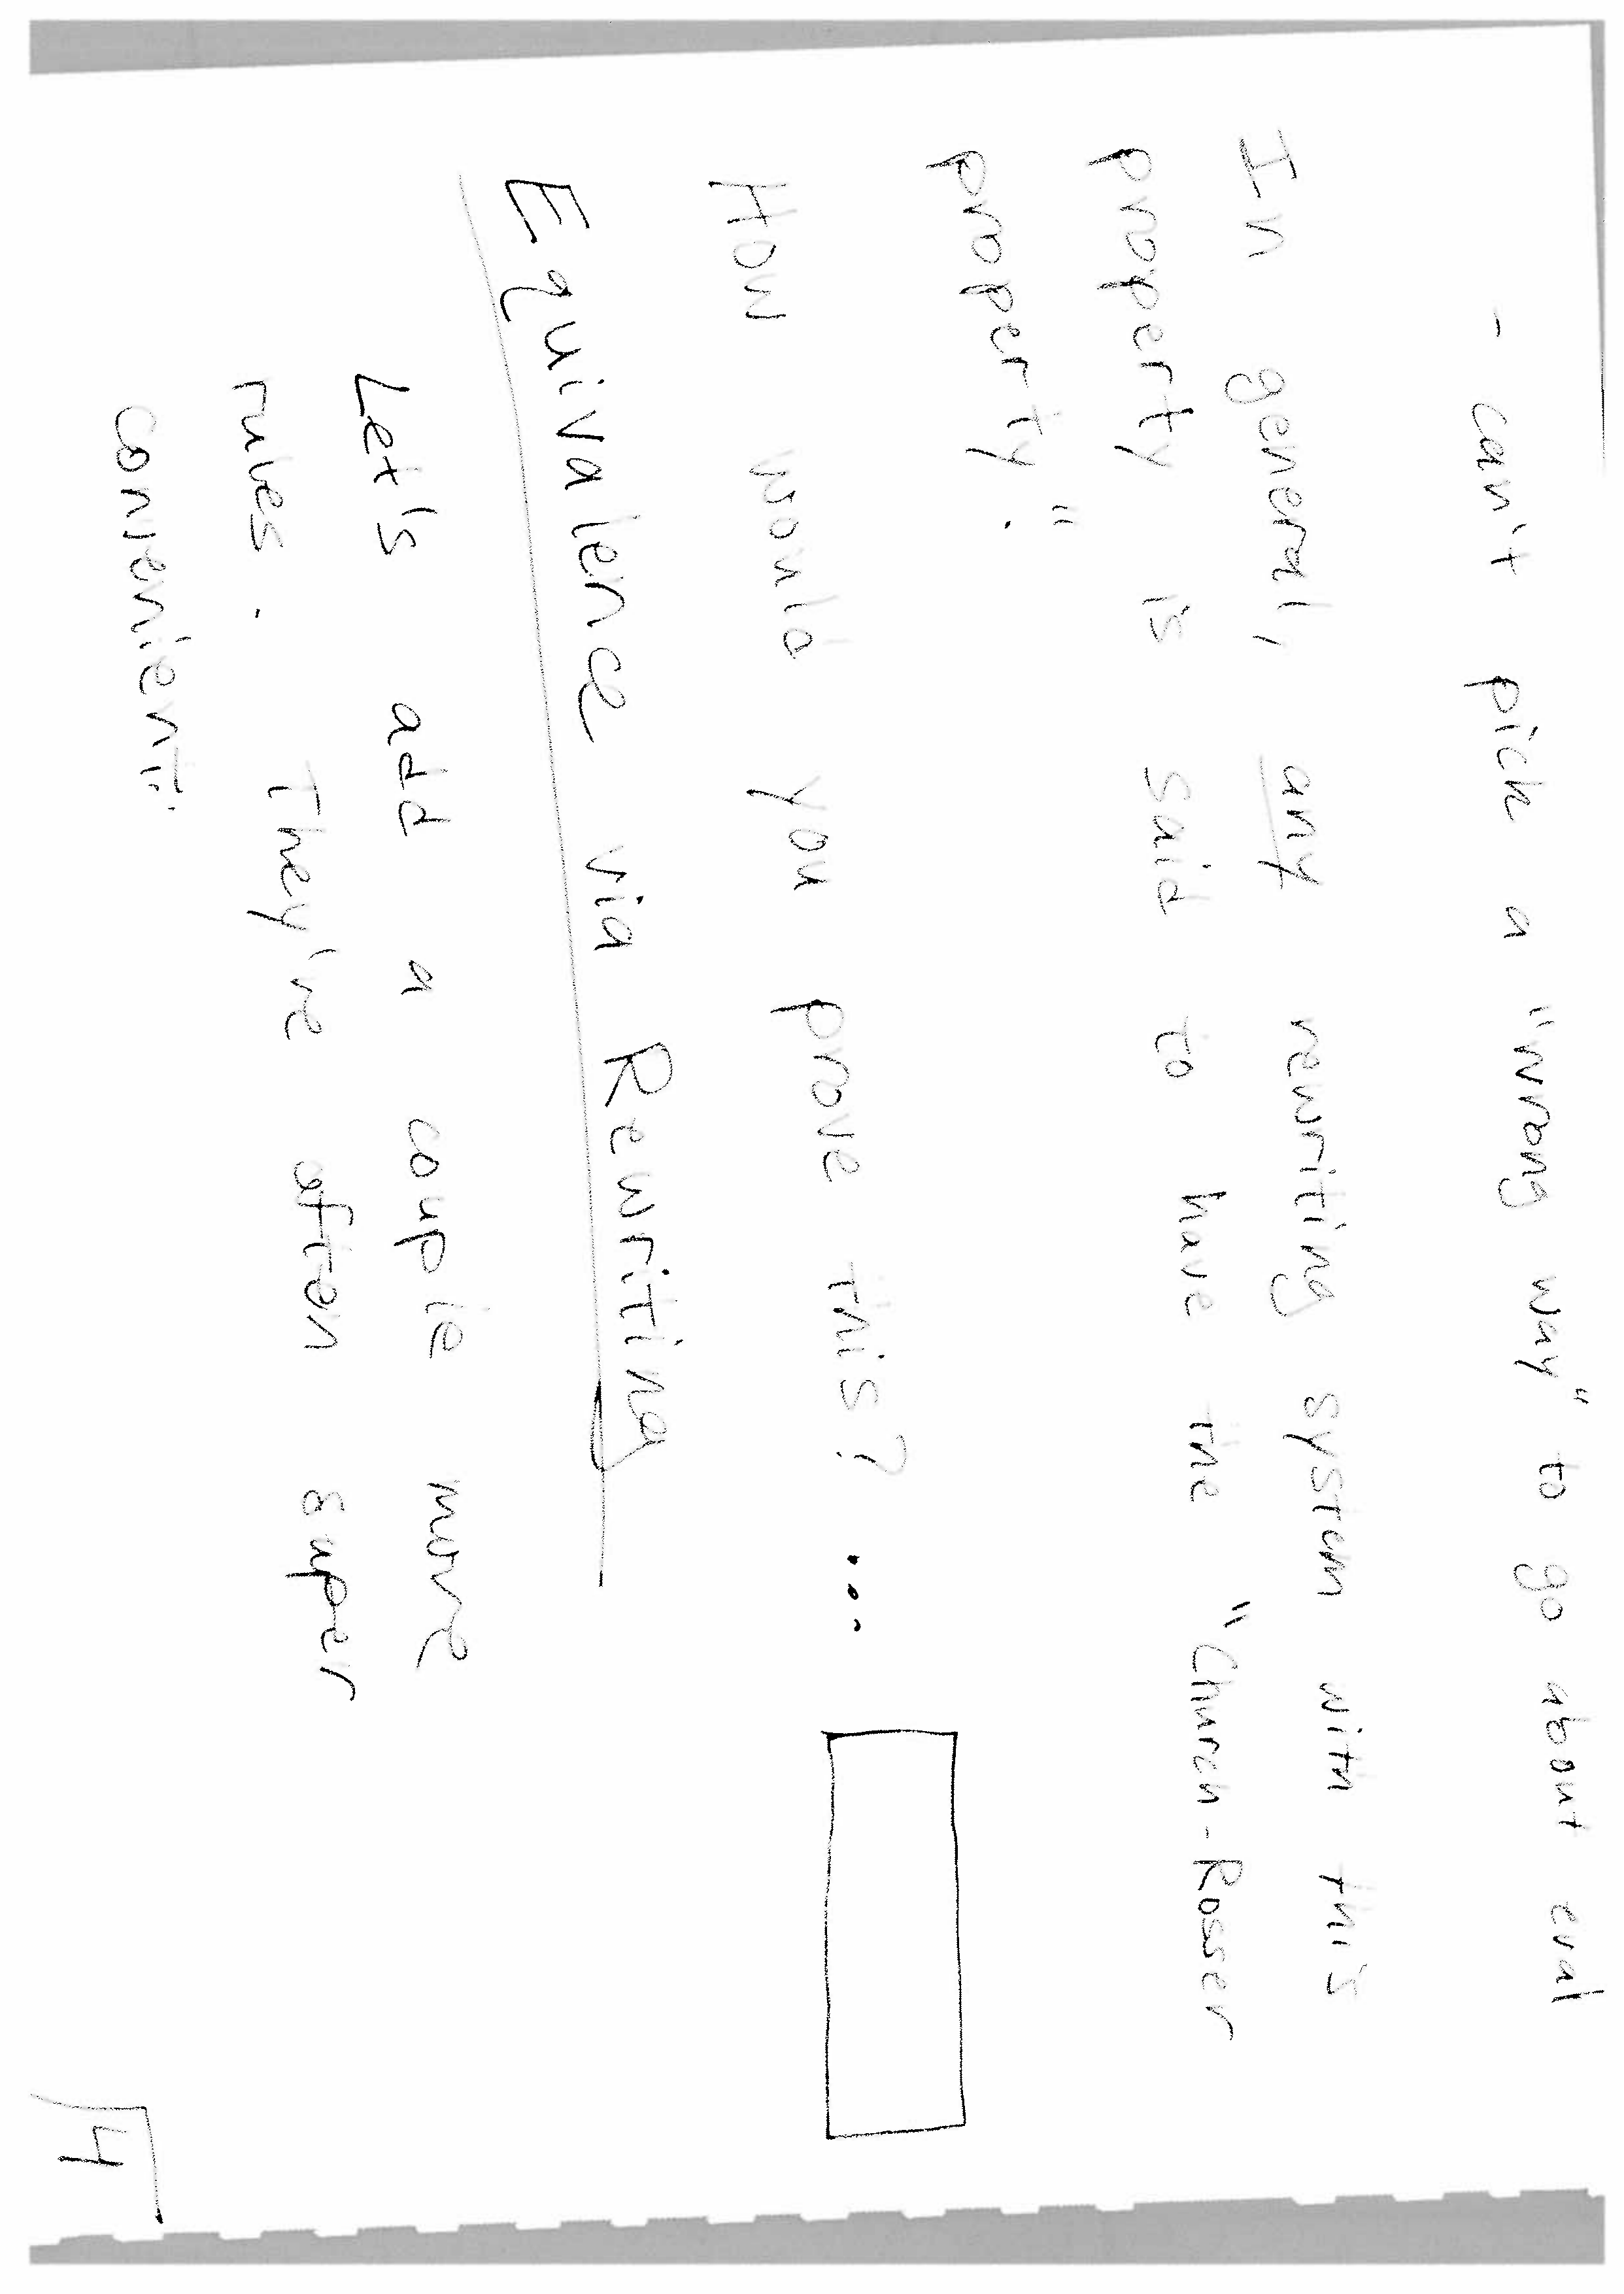 - can't pick a "wrong way" to go about eval
In general, any rewriting system with this
property is said to have the "Church-Rosser
property".
How would you prove this? ...
Equivalence via Rewriting
Let's add a couple more
rules. They're often super
convenient:
4